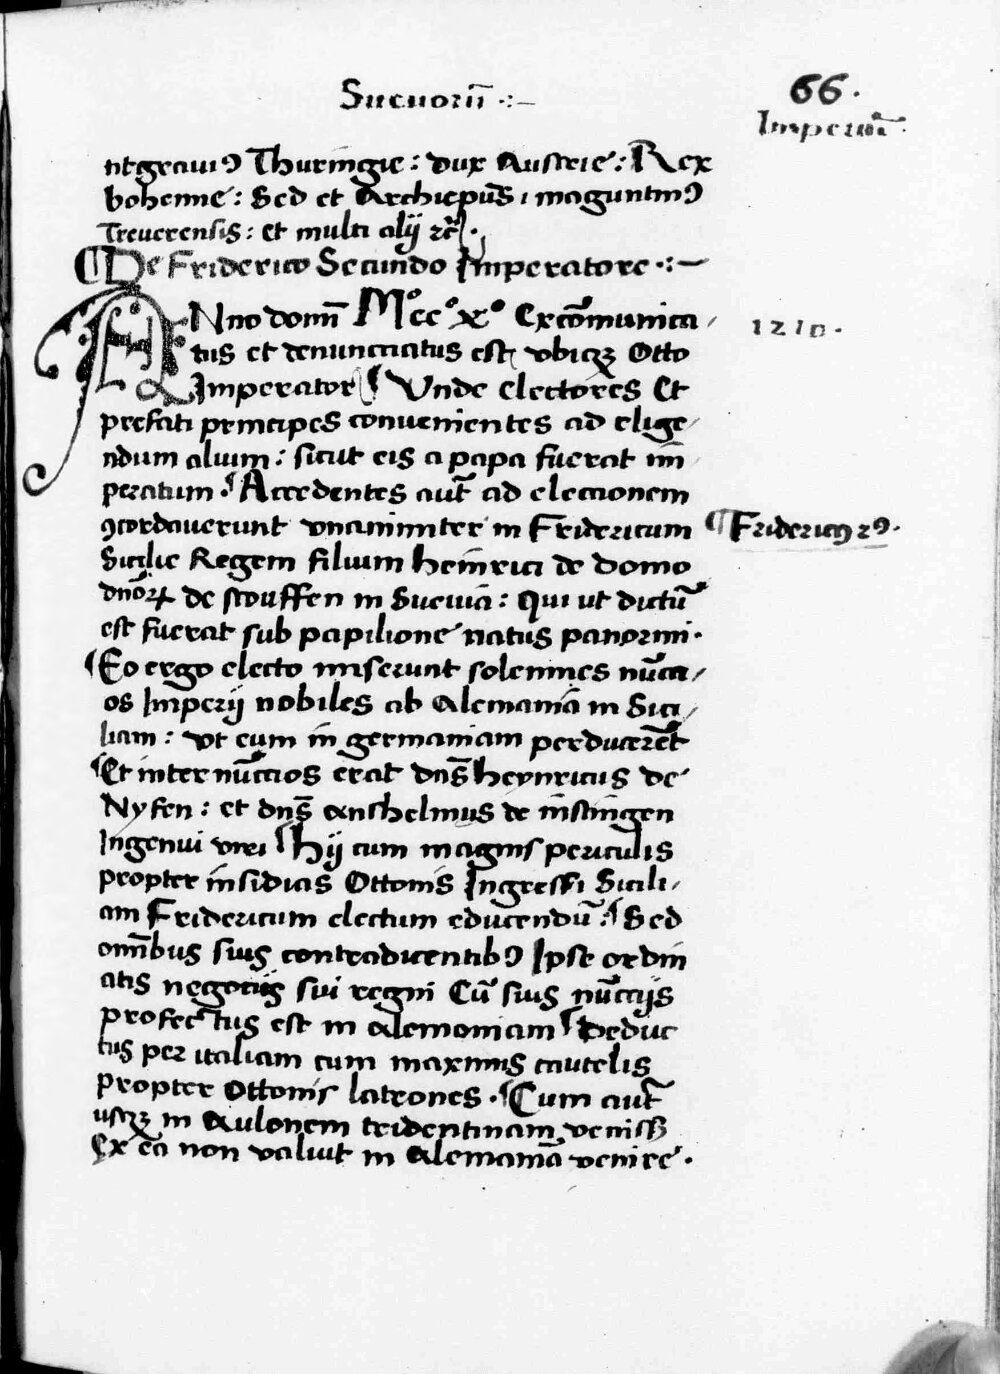 Sueuorū .:—
66.
Imperiū.
ntgrauiꝰ Thuringie : dux Austrie : Rex
bohemie : Sed et Archiepūs maguntinꝰ
Treuerensis : et multi alij ꝛc̄.
¶ De Friderico Secundo Imperatore .:—
ANno domī Mº ccº xº Excōmunica
1210.
tus et denuncciatus est vbiqꝫ Otto
Imperator ¶ Vnde electores Et
prefati principes conuenientes ad elige
ndum alium : sicut eis a papa fuerat im
peratum. ¶ Accedentes aut̄ ad eleccionem
ꝯcordauerunt vnanimiter in Fridericum
¶ Fridericꝰ 2ꝰ.
Sicilie Regem filium heinrici de domo
dn̄oꝝ de stouffen in Sueuia : Qui ut dictū
est fuerat sub papilione natus panormi.
¶ Eo ergo electo miserunt solemnes nūcci
os Imperij nobiles ab Alemaniā in Sici
liam : vt eum in germaniam perducerēt
¶ Et inter nūccios erat dn̄s heynricus de
Nyfen : et dn̄s Anshelmus de instingen
Ingenui viri ¶ hij cum magnis periculis
propter insidias Ottonis Ingressi Sicili
am Fridericum electum educendū : ¶ Sed
omībus suis contradicentibꝰ Ipse ordin
atis negotijs sui regni Cū suis nūccijs
profectus est in alemoniam ¶ Deduc
tus per italiam cum maximis cautelis
propter Ottonis latrones. ¶ Cum aut̄
usqꝫ in Aulonem tridentinam venissꝫ
Ex ea non valuit in Alemaniā venire.